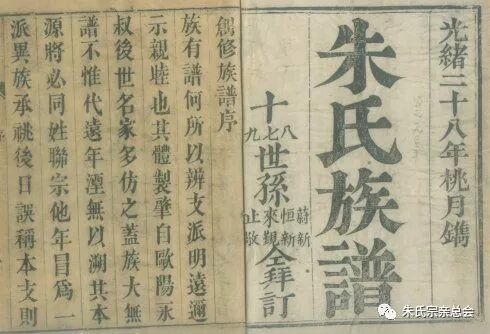 光緒二十八年桃月鐫
朱氏族譜
十八七九世孫蔚新恒新來觀止敬仝拜訂
創修族譜序
族有譜何所以辨支派明遠邇
示親睦也其體製肇自歐陽永
叔後世名家多仿之蓋族大無
譜不惟代遠年湮無以溯其本
源將必同姓聯宗他年冒為一
派異族承祧後日誤稱本支則
序
朱氏宗亲总会